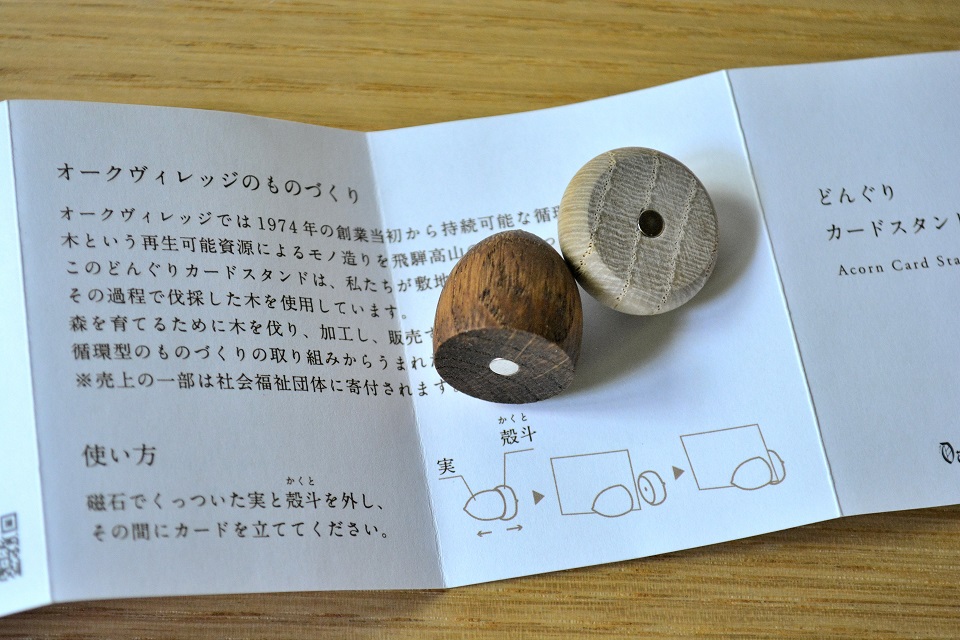 オークヴィレッジのものづくり
オークヴィレッジでは1974年の創業当初から持続可能な循
木という再生可能資源によるモノ造りを飛騨高山
このどんぐりカードスタンドは、私たちが敷地
その過程で伐採した木を使用しています。
森を育てるために木を伐り、加工し、販売
循環型のものづくりの取り組みからうまれ
※売上の一部は社会福祉団体に寄付されます
使い方
かくと
磁石でくっついた実と殻斗を外し、
その間にカードを立ててください。
かくと
殻斗
実
どんぐり
カードスタンド
Acorn Card Sta